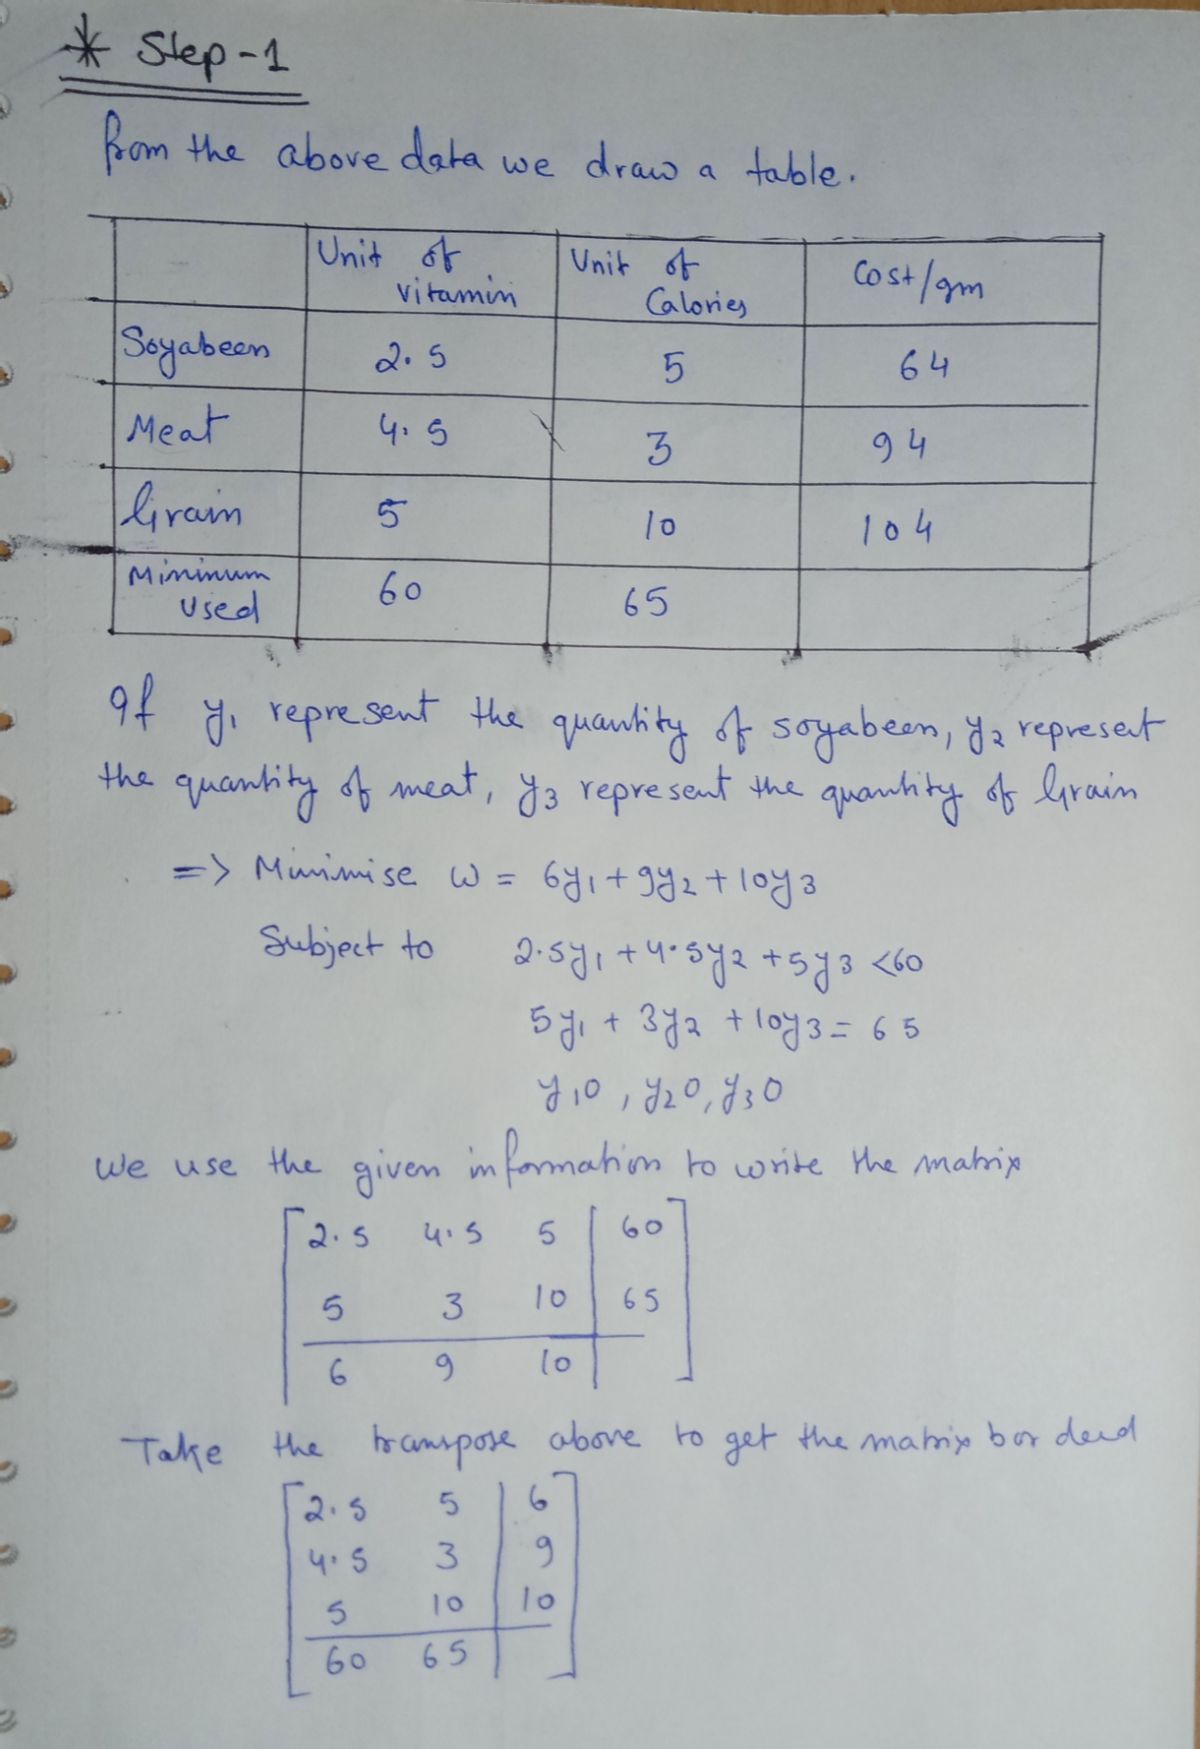 * Step-1
from the above data we draw a table.
Unit of vitamin Unit of Calories Cost/gm
Soyabeen 2.5 5 64
Meat 4.5 3 94
Grain 5 10 104
Mininum used 60 65
If y1 represent the quantity of soyabeen, y2 represent
the quantity of meat, y3 represent the quantity of Grain
=> Minimise w = 6y1 + 9y2 + 10y3
Subject to 2.5y1 + 4.5y2 + 5y3 <60
5y1 + 3y2 + 10y3 = 65
y10, y20, y30
We use the given information to write the matrix
2.5 4.5 5 | 60
5 3 10 | 65
6 9 10 |
Take the transpose above to get the matrix
2.5 5 | 6
4.5 3 | 9
5 10 | 10
60 65 |